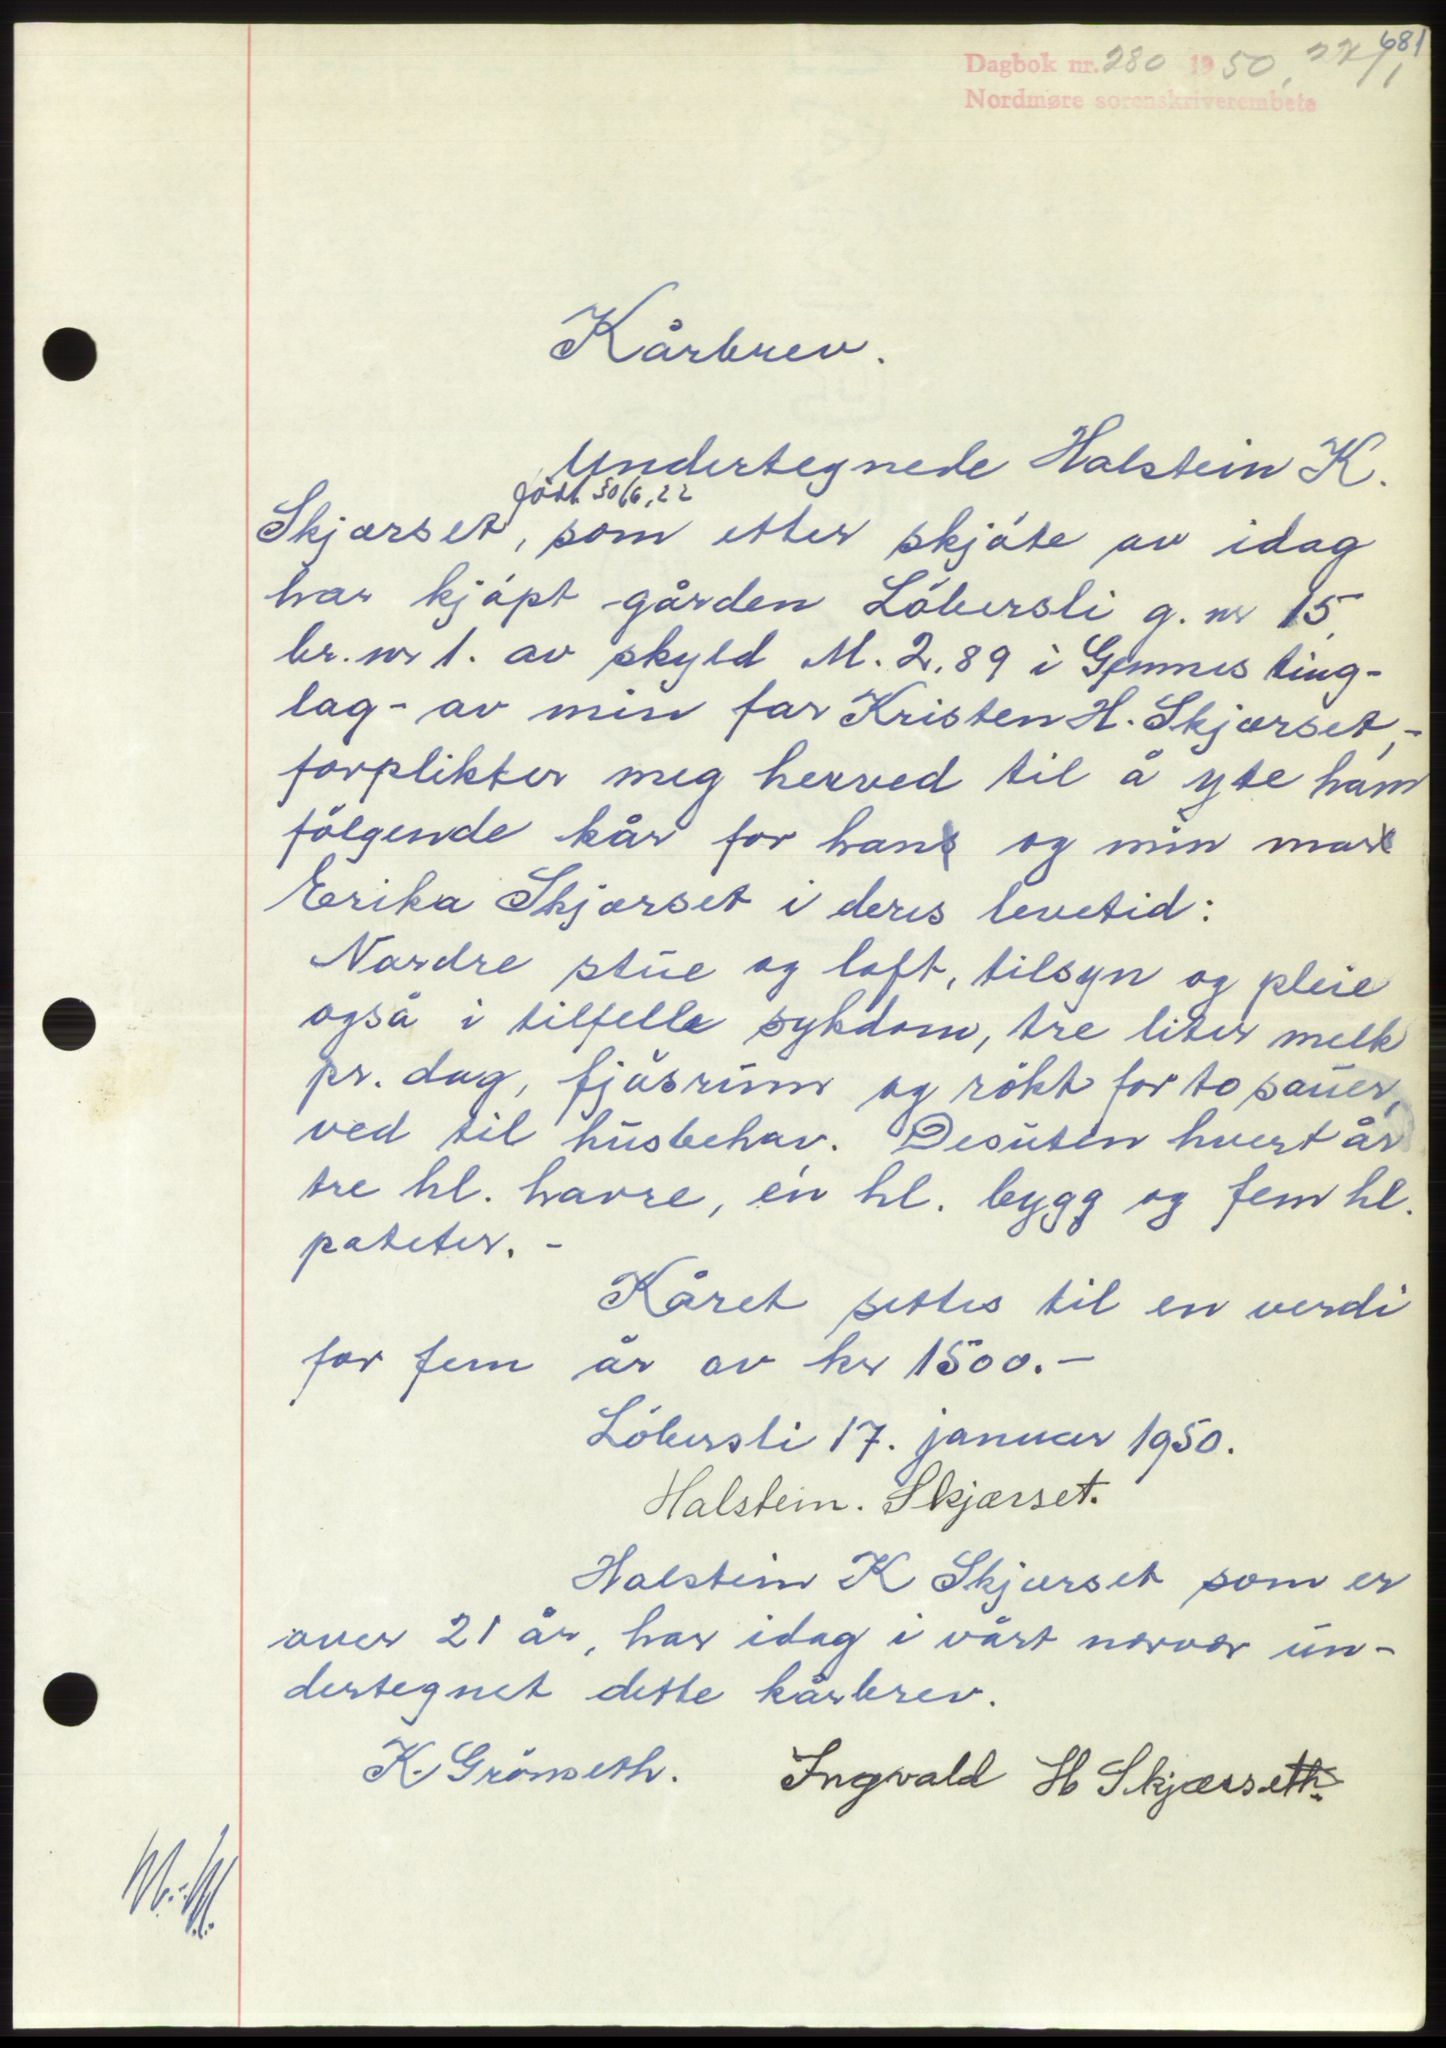 681
Dagbok nr. 280 1950, 24/1
Nordmøre sorenskriverembete
Kårbrev.
Undertegnede Halstein K.
født 30/6, 22
Skjærset, som etter skjöte av idag
har kjöpt gården Löbersli g. nr 15
br. nr 1. av skyld M. 2.89 i Gjemnes ting-
lag - av min far Kristen H. Skjærset, -
forplikter meg herved til å yte ham
fölgende kår for han og min mor
Erika Skjærset i deres levetid:
Nordre stue og loft, tilsyn og pleie
også i tilfelle sykdom, tre liter melk
pr. dag, fjösrum og rökt for to sauer,
ved til husbehov. Desuten hvert år
tre hl. havre, én hl. bygg og fem hl.
poteter. -
Kåret settes til en verdi
for fem år av kr 1500.-
Löbersli 17. januar 1950.
Halstein. Skjærset.
Halstein K Skjærset som er
over 21 år, har idag i vårt nærvær un-
dertegnet dette kårbrev.
K. Grönseth. Ingvald H Skjærseth.